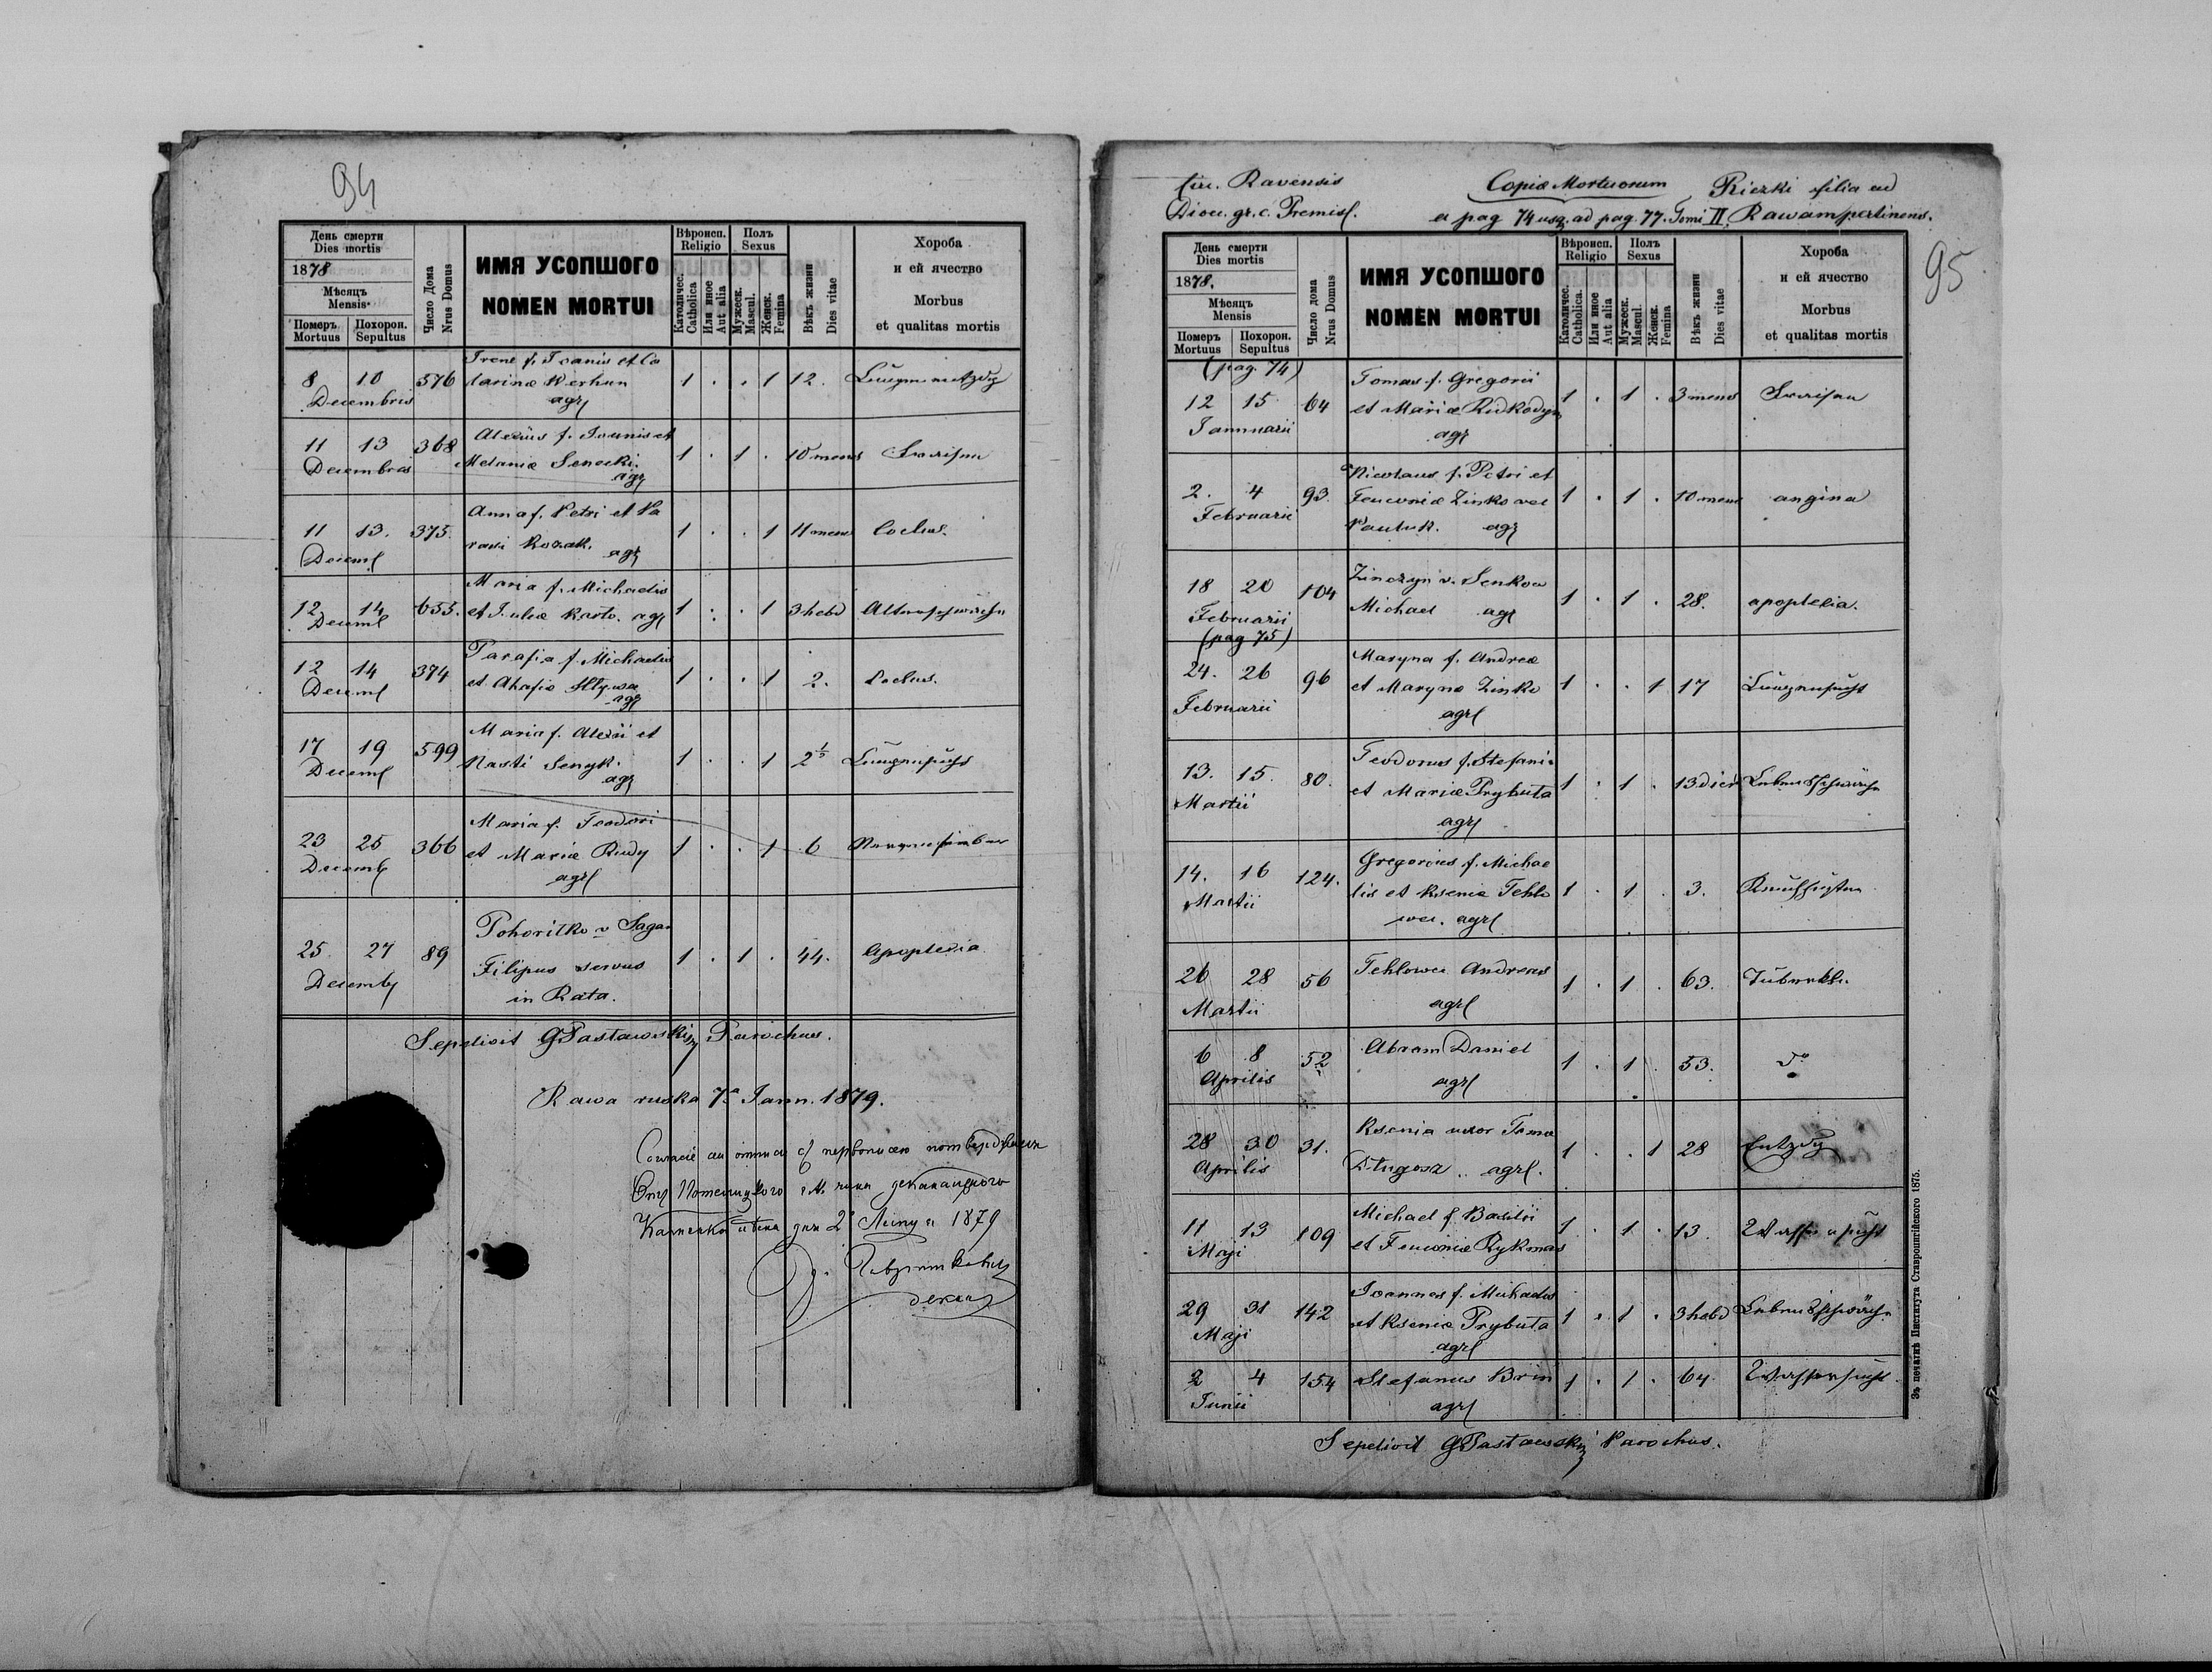 94
День смерти
Dies mortis
1878
Мѣсяцъ
Mensis
Померъ Похорон.
Mortuus Sepultus
Число Дома
Nrus Domus
ИМЯ УСОПШОГО
NOMEN MORTUI
Вѣроисп.
Religio
Католичес.
Catholica
Или иное
Aut alia
Полъ
Sexus
Мужеск.
Mascul.
Женск.
Femina
Вѣкъ жизни
Dies vitae
Хороба
и ей ячество
Morbus
et qualitas mortis
Irene f. Joanis et Ca
8 10 576 tarinæ Werhun 1 . . 1 12.
Decembris agr
Alexius f. Joannis et
11 13 368 Melaniæ Senecki. 1 . 1 . 10 mens
Decembris agr
Anna f. Petri et Pa
11 13. 375. rasi Kozak. 1 . . 1 11 mens Coclus.
Decemb agr
Maria f. Michaelis
12 14 655. et Juliæ agr 1 . . 1 3 hebd
Decemb
Parasia f. Michaelis
12 14 374 et Ahafiæ 1 . . 1 2. Coclus.
Decemb agr
Maria f. Alexii et
17 19 599 Nasti Senyk. 1 . . 1 2½ Lungensucht
Decemb agr
Maria f. Teodori
23 25 366 et Mariæ Rudy 1 . . 1 6
Decemb agr
Pohorilko v Saga
25. 27 89 Filipus servus 1 . 1 . 44. Apoplexia
Decemb in Rata.
Sepelivit GPastawskij Parochus.
Rawa ruska 7a Jann. 1879.
дня 2 Липця 1879
декан
Dioec. gr. c. Premisl.
Ravensis
Copia Mortuorum
Rieczki filia ad
a pag 74 usq ad pag. 77. Tomi II, Rawam pertinens.
95
День смерти
Dies mortis
1878.
Мѣсяцъ
Mensis
Померъ Похорон.
Mortuus Sepultus
Число дома
Nrus Domus
ИМЯ УСОПШОГО
NOMEN MORTUI
Вѣроисп.
Religio
Католичес.
Catholica.
Или иное
Aut alia
Полъ
Sexus
Мужеск.
Mascul.
Женск.
Femina
Вѣкъ жизни
Dies vitae
Хороба
и ей ячество
Morbus
et qualitas mortis
(pag. 74)
Tomas f. Gregorii
12 15 64 et Mariæ 1 . 1 . 3 mens
Jannuarii agr
Nicolaus f. Petri et
2. 4 93. Feuconiæ Zinko vel 1 . 1 . 10 mens angina
Februarii agr
Zinczyn v. Senkow
18 20 104 Michael agr 1 . 1 . 28. apoplexia.
Februarii
(pag 75)
Maryna f. Andreæ
24. 26 96 et Marynæ Zinko 1 . . 1 17 Lungensucht
Februarii agrl
Teodorus f. Stefani
13. 15. 80. et Mariæ Prybuta 1 . 1 . 13 dier Lebensschwäche
Martii agrl
Gregorius f. Michae
14. 16 124. lis et Kseniæ Tehlo 1 . 1 . 3. Keuchhusten
Martii wec. agrl
26 28 56 Tehlowec Andreas 1 . 1 . 63. Tuberkl.
Martii agrl
6 8 52 Abram Daniel 1 . 1 . 53. do
Aprilis agrl
Ksenia uxor Tomæ
28 30 31. Długosz agrl. 1 . . 1 28 Entzdg
Aprilis
Michael f. Basilii
11 13 109 et Feuconiæ Rykmas 1 . 1 . 13. Wassersucht
Maji
Joannes f. Michaelis
29 31 142 et Kseniæ Prybuta 1 . 1 . 3 hebd Lebensschwäche
Maji agrl
2 4 154 Stefanus Brin 1 . 1 . 64. Wassersucht
Junii agrl
Sepelivit GPastawskij Parochus.
Зъ печатнѣ Института Ставропигійского 1875.